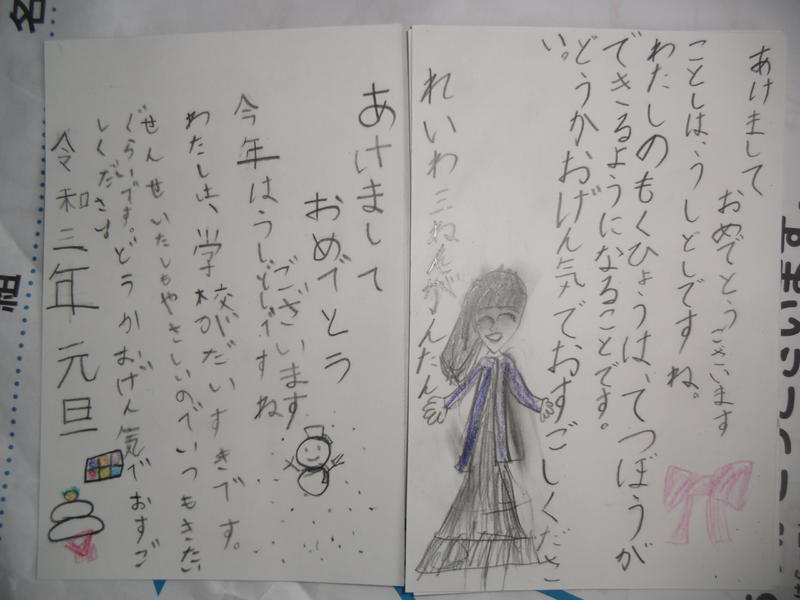 あけまして
おめでとうございます
ことしは、うしどしですね。
わたしのもくひょうは、てつぼうが
できるようになることです。
どうかおげん気でおすごしくださ
い。
れいわ三ねんがんたん
あけまして
おめでとう
ございます
今年はうしどしですね
わたしは、学校がだいすきです。
せんせいたしもやさしいのでいつもきたい
ぐらいです。どうかおげん気でおすご
しください
令和三年元旦